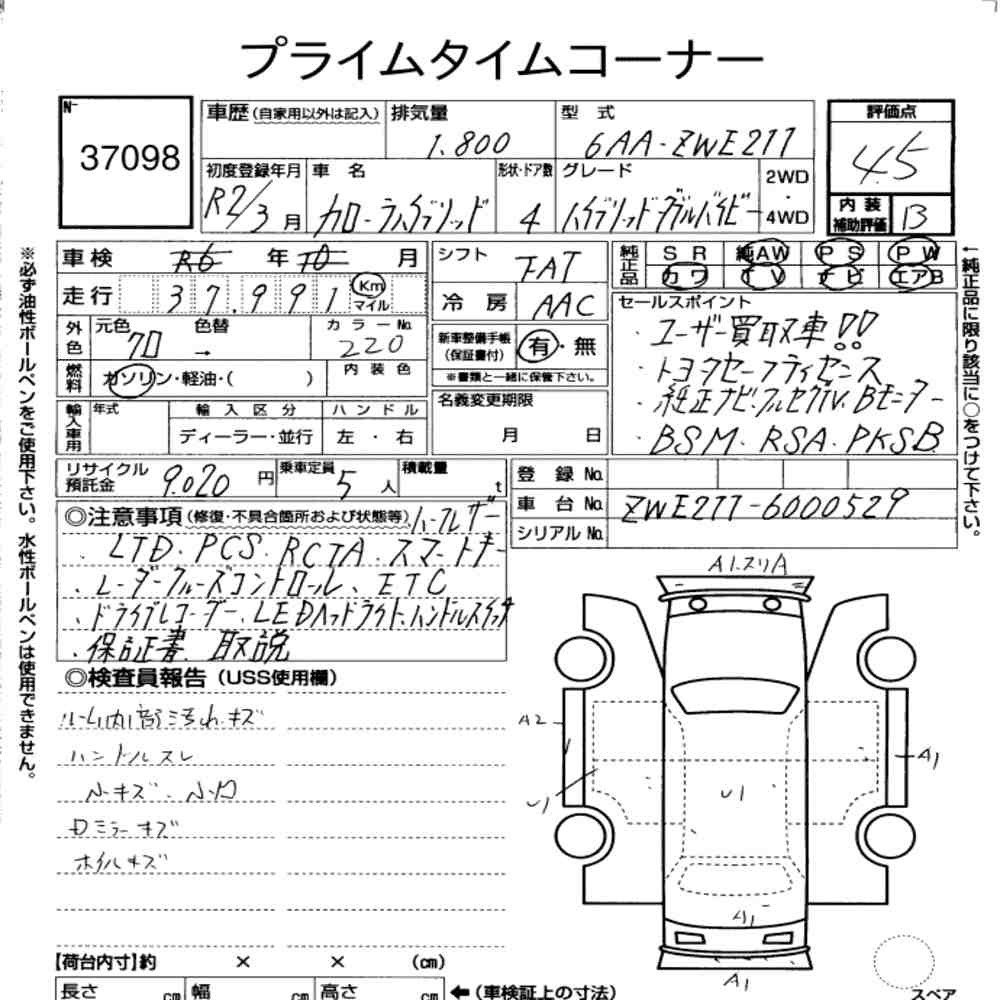 プライムタイムコーナー
№
37098
車歴(自家用以外は記入) 排気量 1.800 型 式 6AA-ZWE211
評価点
4.5
内 装
補助評価 B
初度登録年月 R2/3 月
車 名 カローラハイブリッド
形状・ドア数 4
グレード ハイブリッド・ダブルバイビー
2WD
・
4WD
※必ず油性ボールペンをご使用下さい。水性ボールペンは使用できません。
車検 R6 年 10 月
シフト FAT
純正品 SR 純AW PS PW
カワ TV ナビ エアB
走行 37.991 Km
マイル
冷 房 AAC
セールスポイント
・ユーザー買取車!!
・トヨタセーフティセンス
・純正ナビ・フルセグTV.Bモニター
・BSM・RSA・PKSB
外色 元色 クロ 色替 → カラーNo. 220
新車整備手帳
(保証書付) 有・無
※書類と一緒に保管下さい。
燃料 ガソリン・軽油・( ) 内装色
輸入車用 年式 輸入区分 ハンドル
ディーラー・並行 左・右
名義変更期限
月 日
←純正品に限り該当に○をつけて下さい。
リサイクル
預託金 9.020 円 乗車定員 5 人 積載量 t
登 録 No.
車 台 No. ZWE211-6000529
シリアル No.
◎注意事項(修復・不具合箇所および状態等) ハーフレザー
・LTD・PCS・RCTA・スマートキー
・レーダークルーズコントロール、ETC
・ドライブレコーダー、LEDヘッドライト.ハンドルスイッチ
・保証書、取説
◎検査員報告(USS使用欄)
ルーム内部汚れ.キズ
ハンドルスレ
小キズ.小凹
Dミラーキズ
ホイルキズ
A1.スリA
A2
A1
U1
U1
A1
A1
【荷台内寸】約 × × (cm)
長さ cm 幅 cm 高さ cm ←(車検証上の寸法)
スペア